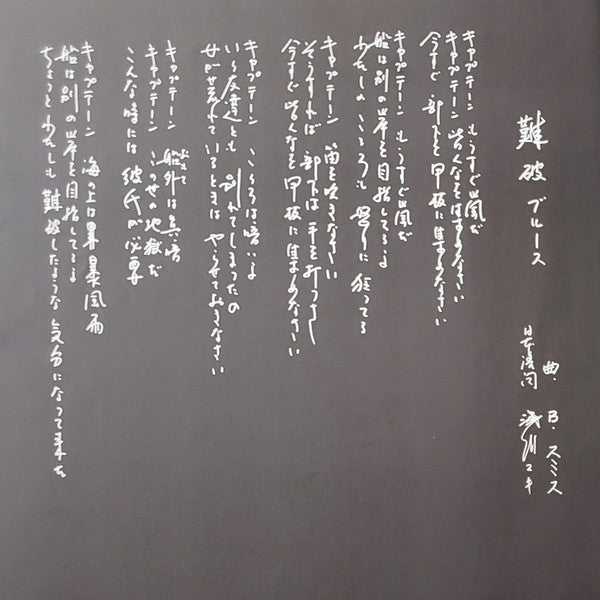 難破ブルース
曲・B・スミス
日本語詞 浅川マキ
キャプテーン もうすぐ嵐だ
キャプテーン 皆んなを
今すぐ 部下を甲板に集めなさい
キャプテーン もうすぐ嵐だ
船は別の岸を目指してるよ
わたしのこころも 狂ってる
キャプテーン 笛を吹きなさい
そうすれば 部下は手を打つし
今すぐ 皆んなを甲板に集めなさい
キャプテーン こころは暗いよ
いい友達とも 別れてしまったの
女が荒れているときは やらせておきなさい
キャプテーン 船外は真暗
キャプテーン この世の地獄だ
こんな時には 彼氏が必要
キャプテーン 海の上は 暴風雨
船は別の岸を目指してるよ
ちょっと わたしも 難破したような気分になって来た